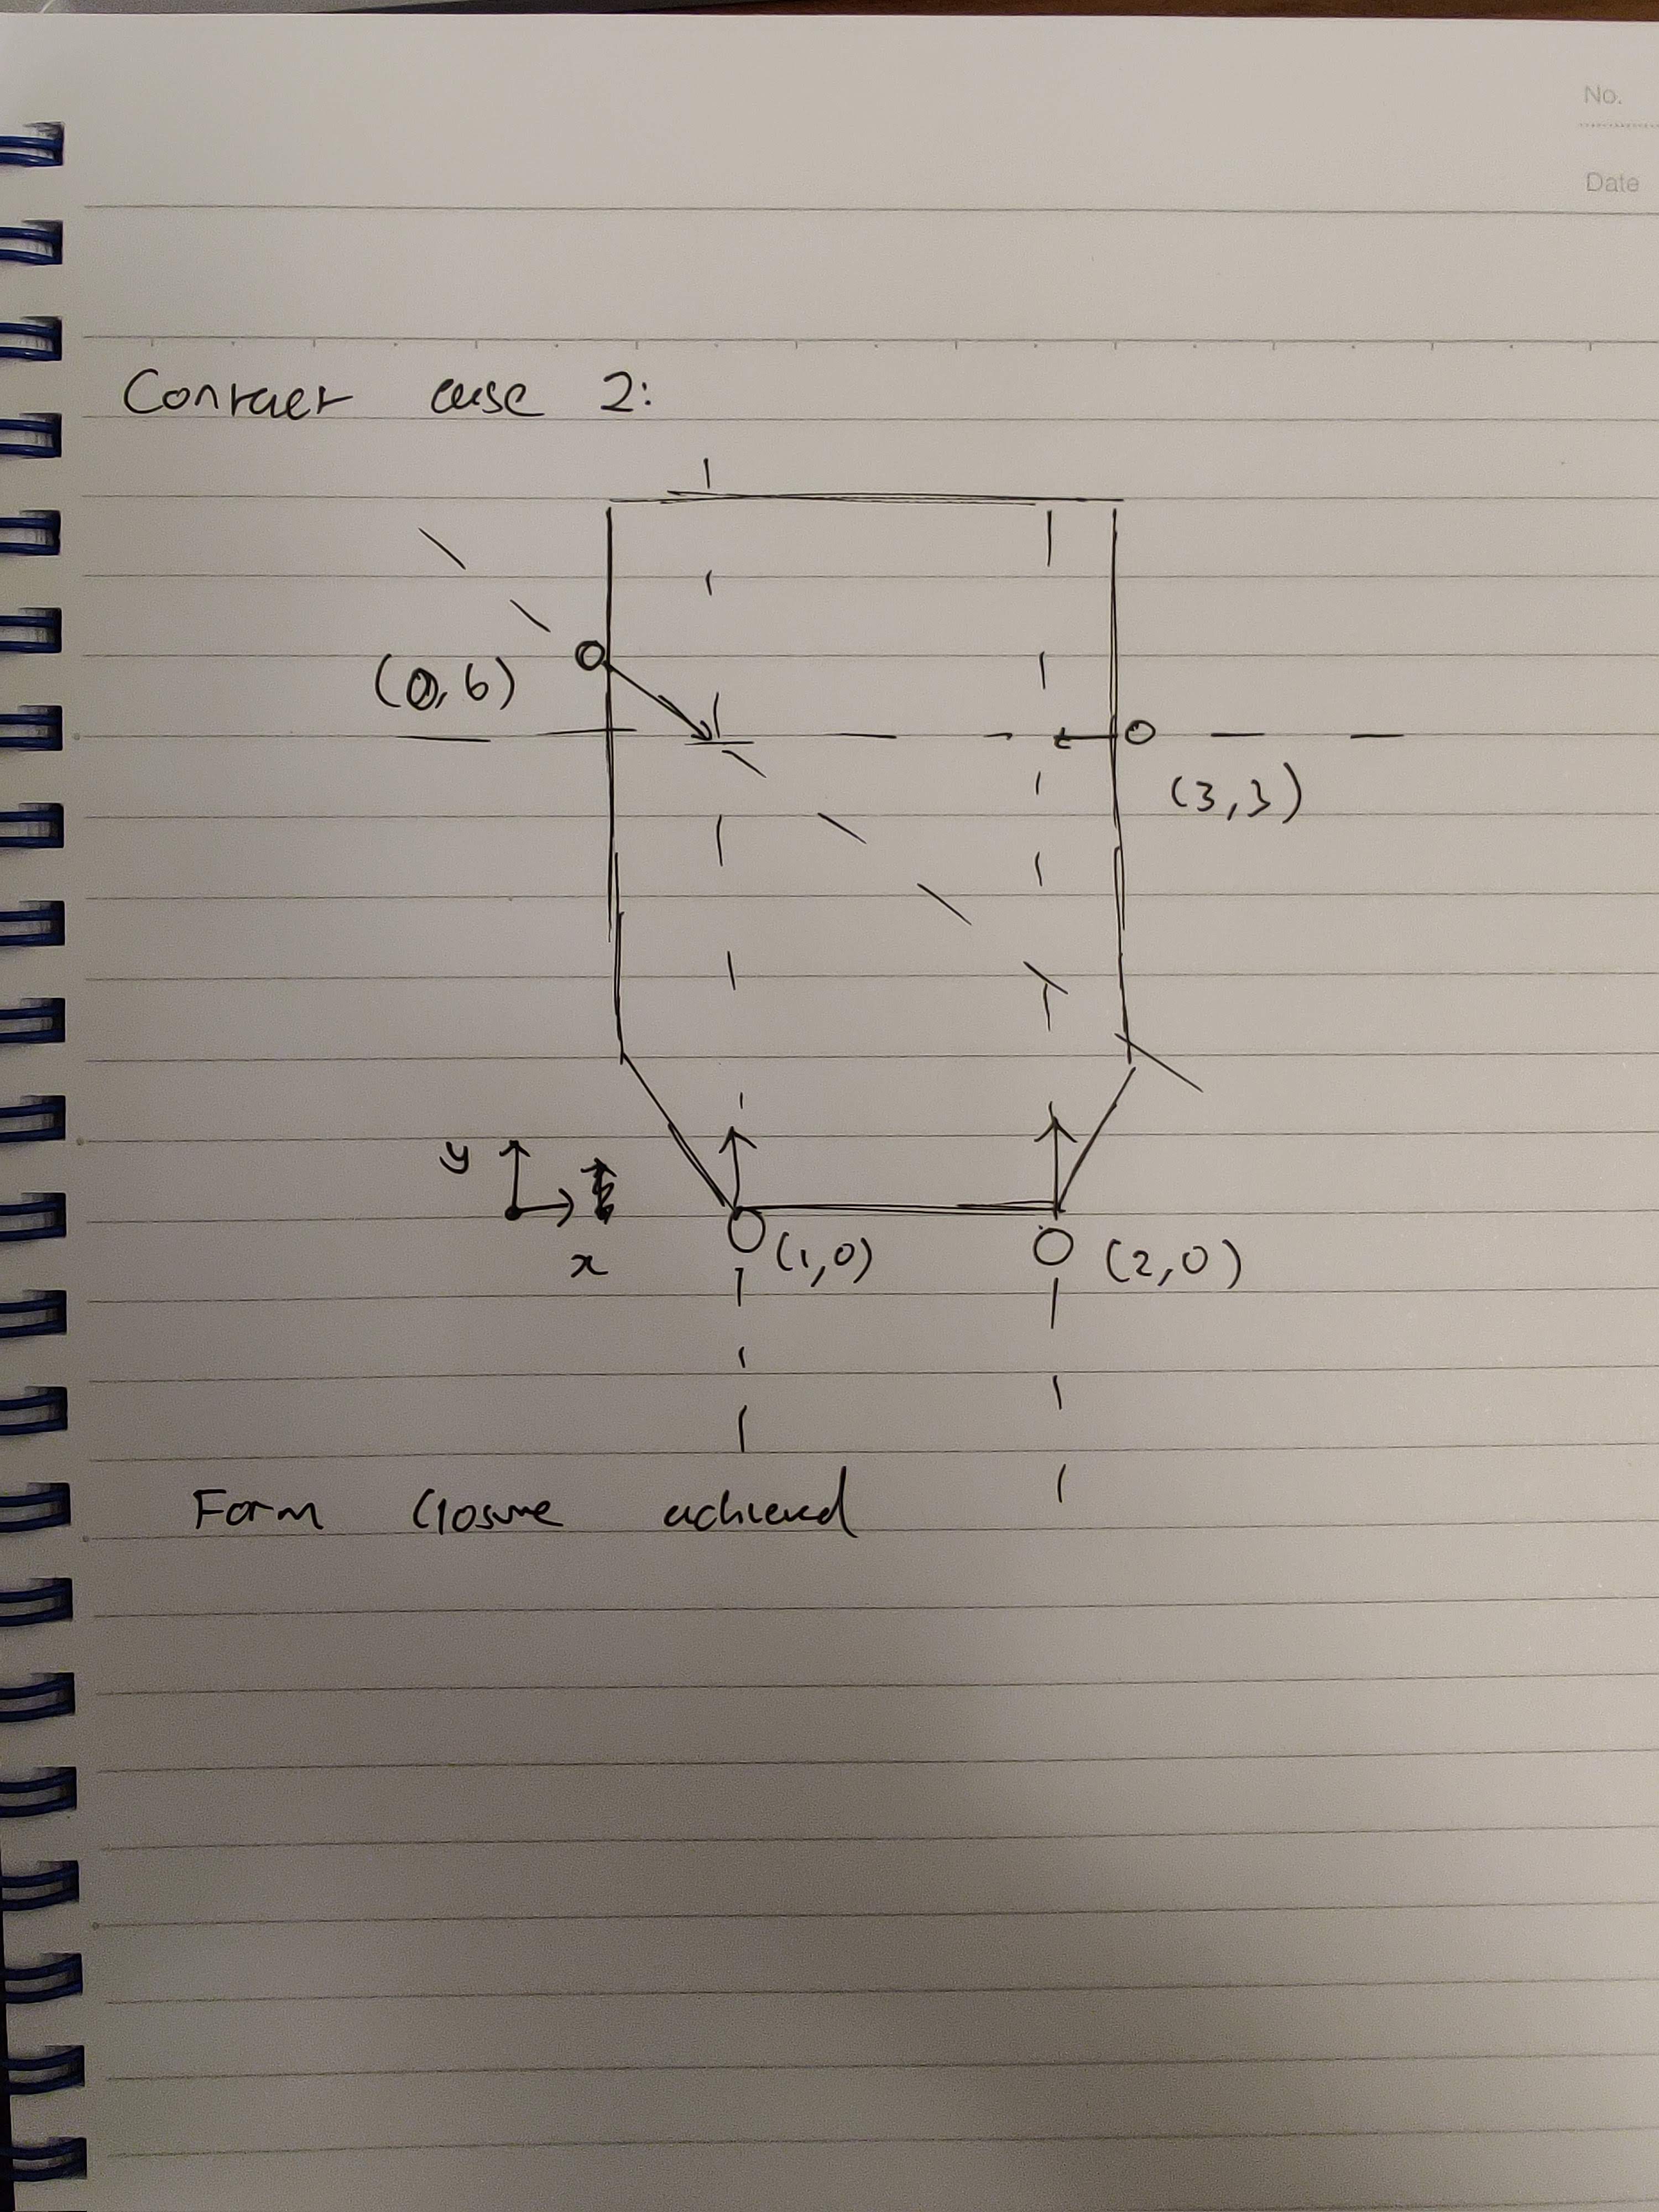 No.
Date
Contact case 2:
(0,6)
(3,3)
y
x
(1,0)
(2,0)
Form closure achieved